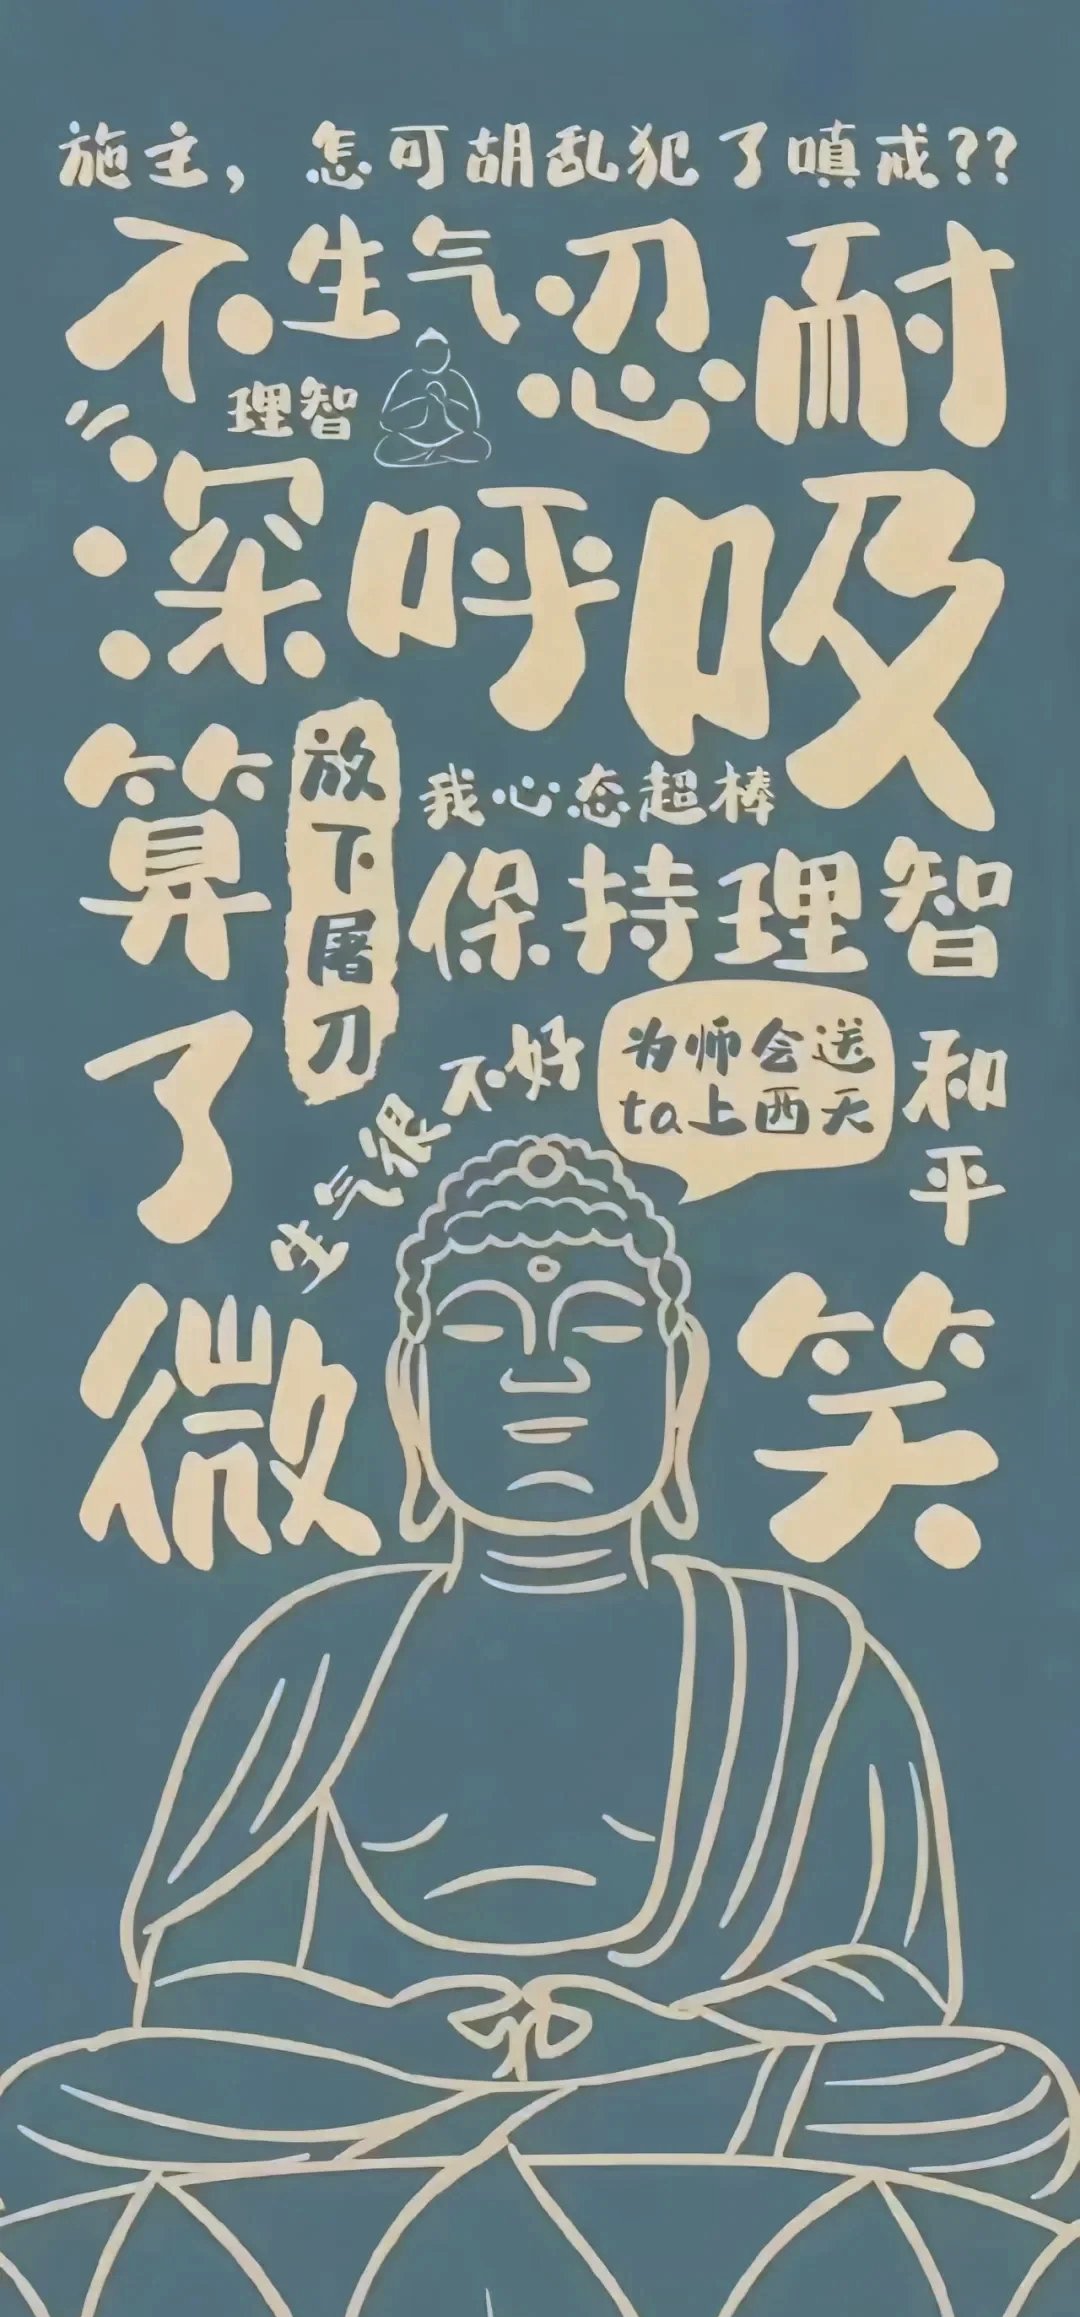 施主，怎可胡乱犯了嗔戒??
不生气忍耐
理智
深呼吸
算了
放下屠刀
我心态超棒
保持理智
和平
生气很不好
为师会送
ta上西天
微笑